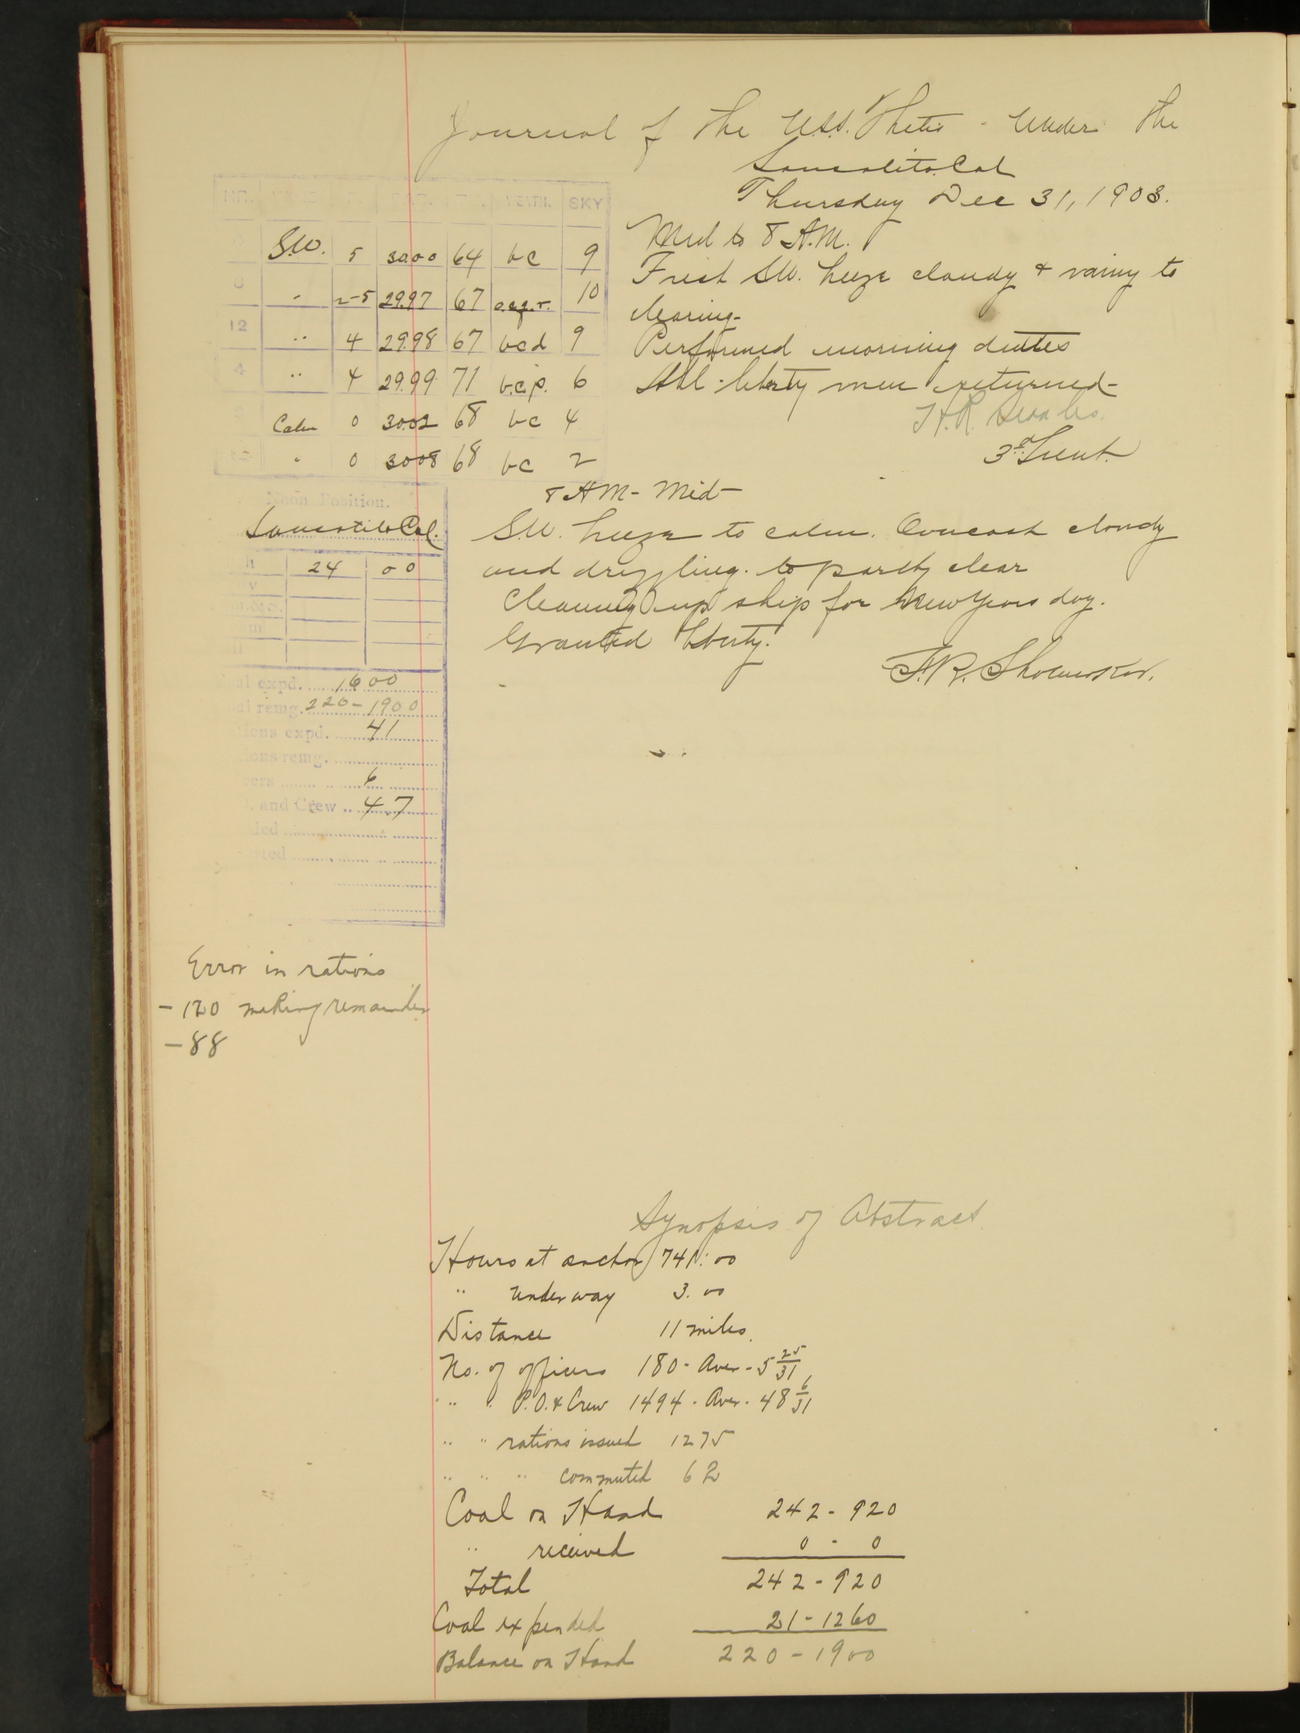 Journal of the U.S.S. Thetis - Under the
Sausalito Cal
Thursday Dec 31, 1903.
HR. WEATH. SKY
S.W. 5 3000 64 bc 9
" 2-5 29.97 67 o.c.q.r. 10
12 " 4 29.98 67 bcd 9
4 " 4 29.99 71 b.c.p. 6
Calm 0 30.02 68 bc 4
" 0 30.08 68 bc 2
Mid to 8 A.M.
Fresh SW. breeze cloudy & rainy to
clearing-
Performed morning duties
All liberty men returned-
H.R. Searles.
3d Lieut.
8 AM - Mid-
S.W. breeze to calm. Overcast cloudy
and drizzling. to partly clear
Cleaning up ship for New Years day.
Granted liberty.
F.R. Shoemaker.
Noon Position.
Sausalito Cal.
24 00
expd. 1600
remg. 220-1900
expd. 41
remg.
6
and Crew 47
Error in rations
- 120 making remainder
- 88
Synopsis of Abstract
Hours at anchor 741:00
" under way 3.00
Distance 11 miles.
No. of officers 180 - Aver - 5 25/31
" " P.O. & Crew 1494 - Aver - 48 6/31
" " rations issued 1275
" " " commuted 62
Coal on Hand 242 - 920
" received 0 - 0
Total 242 - 920
Coal expended 21 - 1260
Balance on Hand 220 - 1900